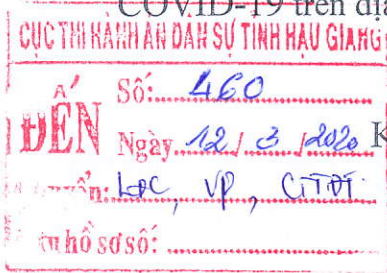 COVID-19 trên địa
CỤC THI HÀNH ÁN DÂN SỰ TỈNH HẬU GIANG
ĐẾN
Số: 460
Ngày 12/3/2020 K
VP,
hồ sơ số: